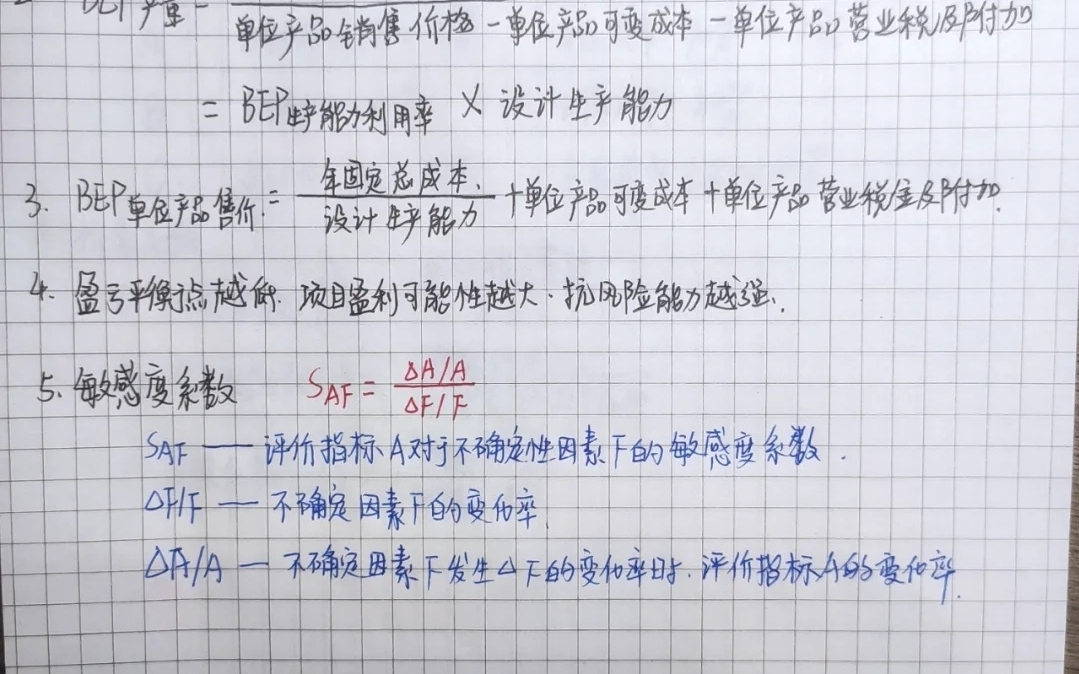 BEP产量 =
单位产品销售价格 - 单位产品可变成本 - 单位产品营业税及附加
= BEP生产能力利用率 × 设计生产能力
3. BEP单位产品售价 = 年固定总成本 / 设计生产能力 + 单位产品可变成本 + 单位产品营业税金及附加.
4. 盈亏平衡点越低. 项目盈利可能性越大. 抗风险能力越强.
5. 敏感度系数 SAF = ΔA/A / ΔF/F
SAF —— 评价指标A对于不确定性因素F的敏感度系数.
ΔF/F — 不确定因素F的变化率.
ΔA/A — 不确定因素F发生ΔF的变化率时. 评价指标A的变化率.